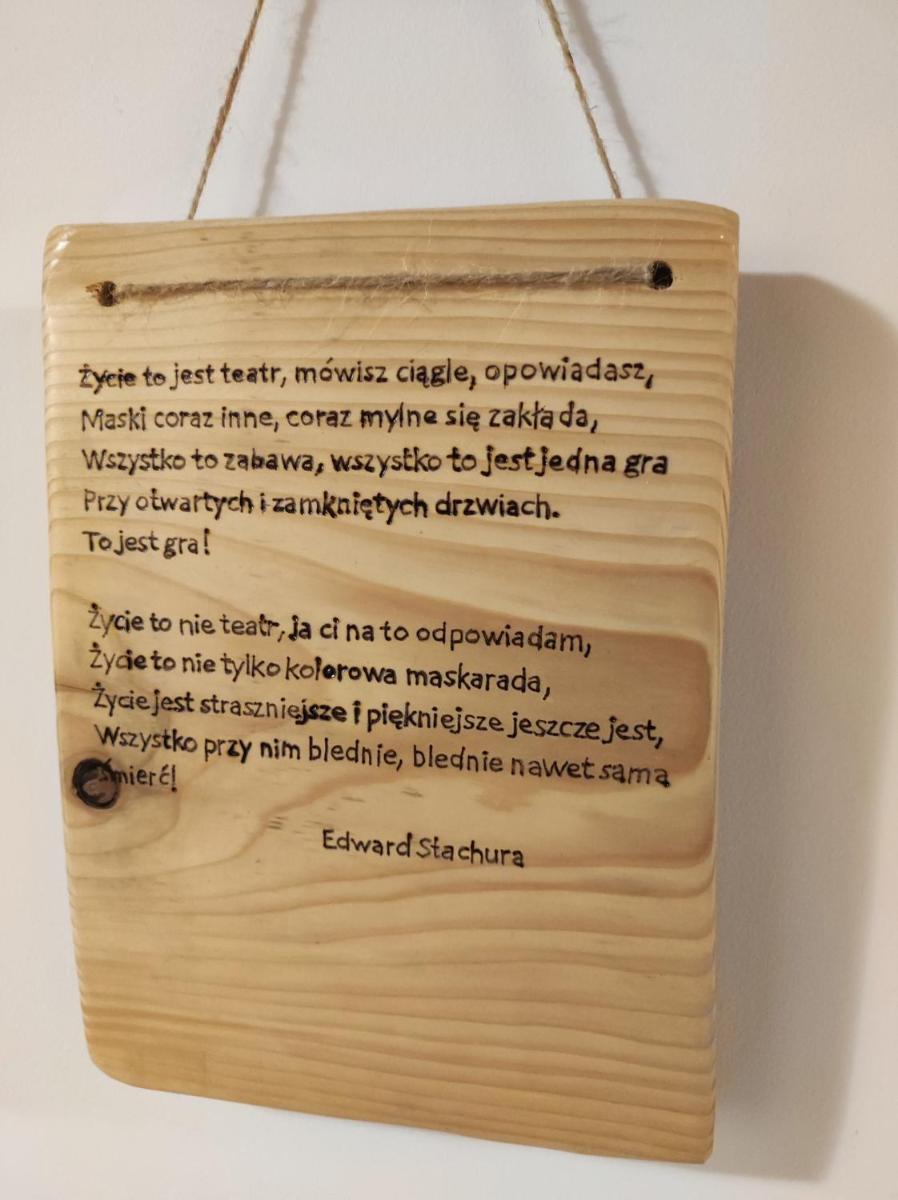 Życie to jest teatr, mówisz ciągle, opowiadasz,
Maski coraz inne, coraz mylne się zakłada,
Wszystko to zabawa, wszystko to jest jedna gra
Przy otwartych i zamkniętych drzwiach.
To jest gra!
Życie to nie teatr, ja ci na to odpowiadam,
Życie to nie tylko kolorowa maskarada,
Życie jest straszniejsze i piękniejsze jeszcze jest,
Wszystko przy nim blednie, blednie nawet sama
śmierć!
Edward Stachura